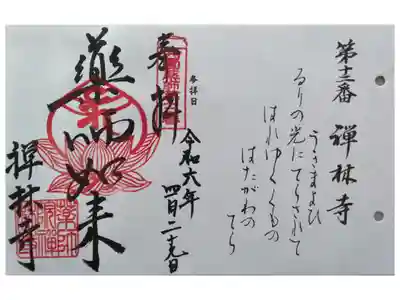 第十二番 禅林寺
うきまよひ
るりの光にてらされて
はれゆくくもの
はたがわの
てら
参拝日
令和六年
四月二十九日
奉拝
薬師如来
禅林寺